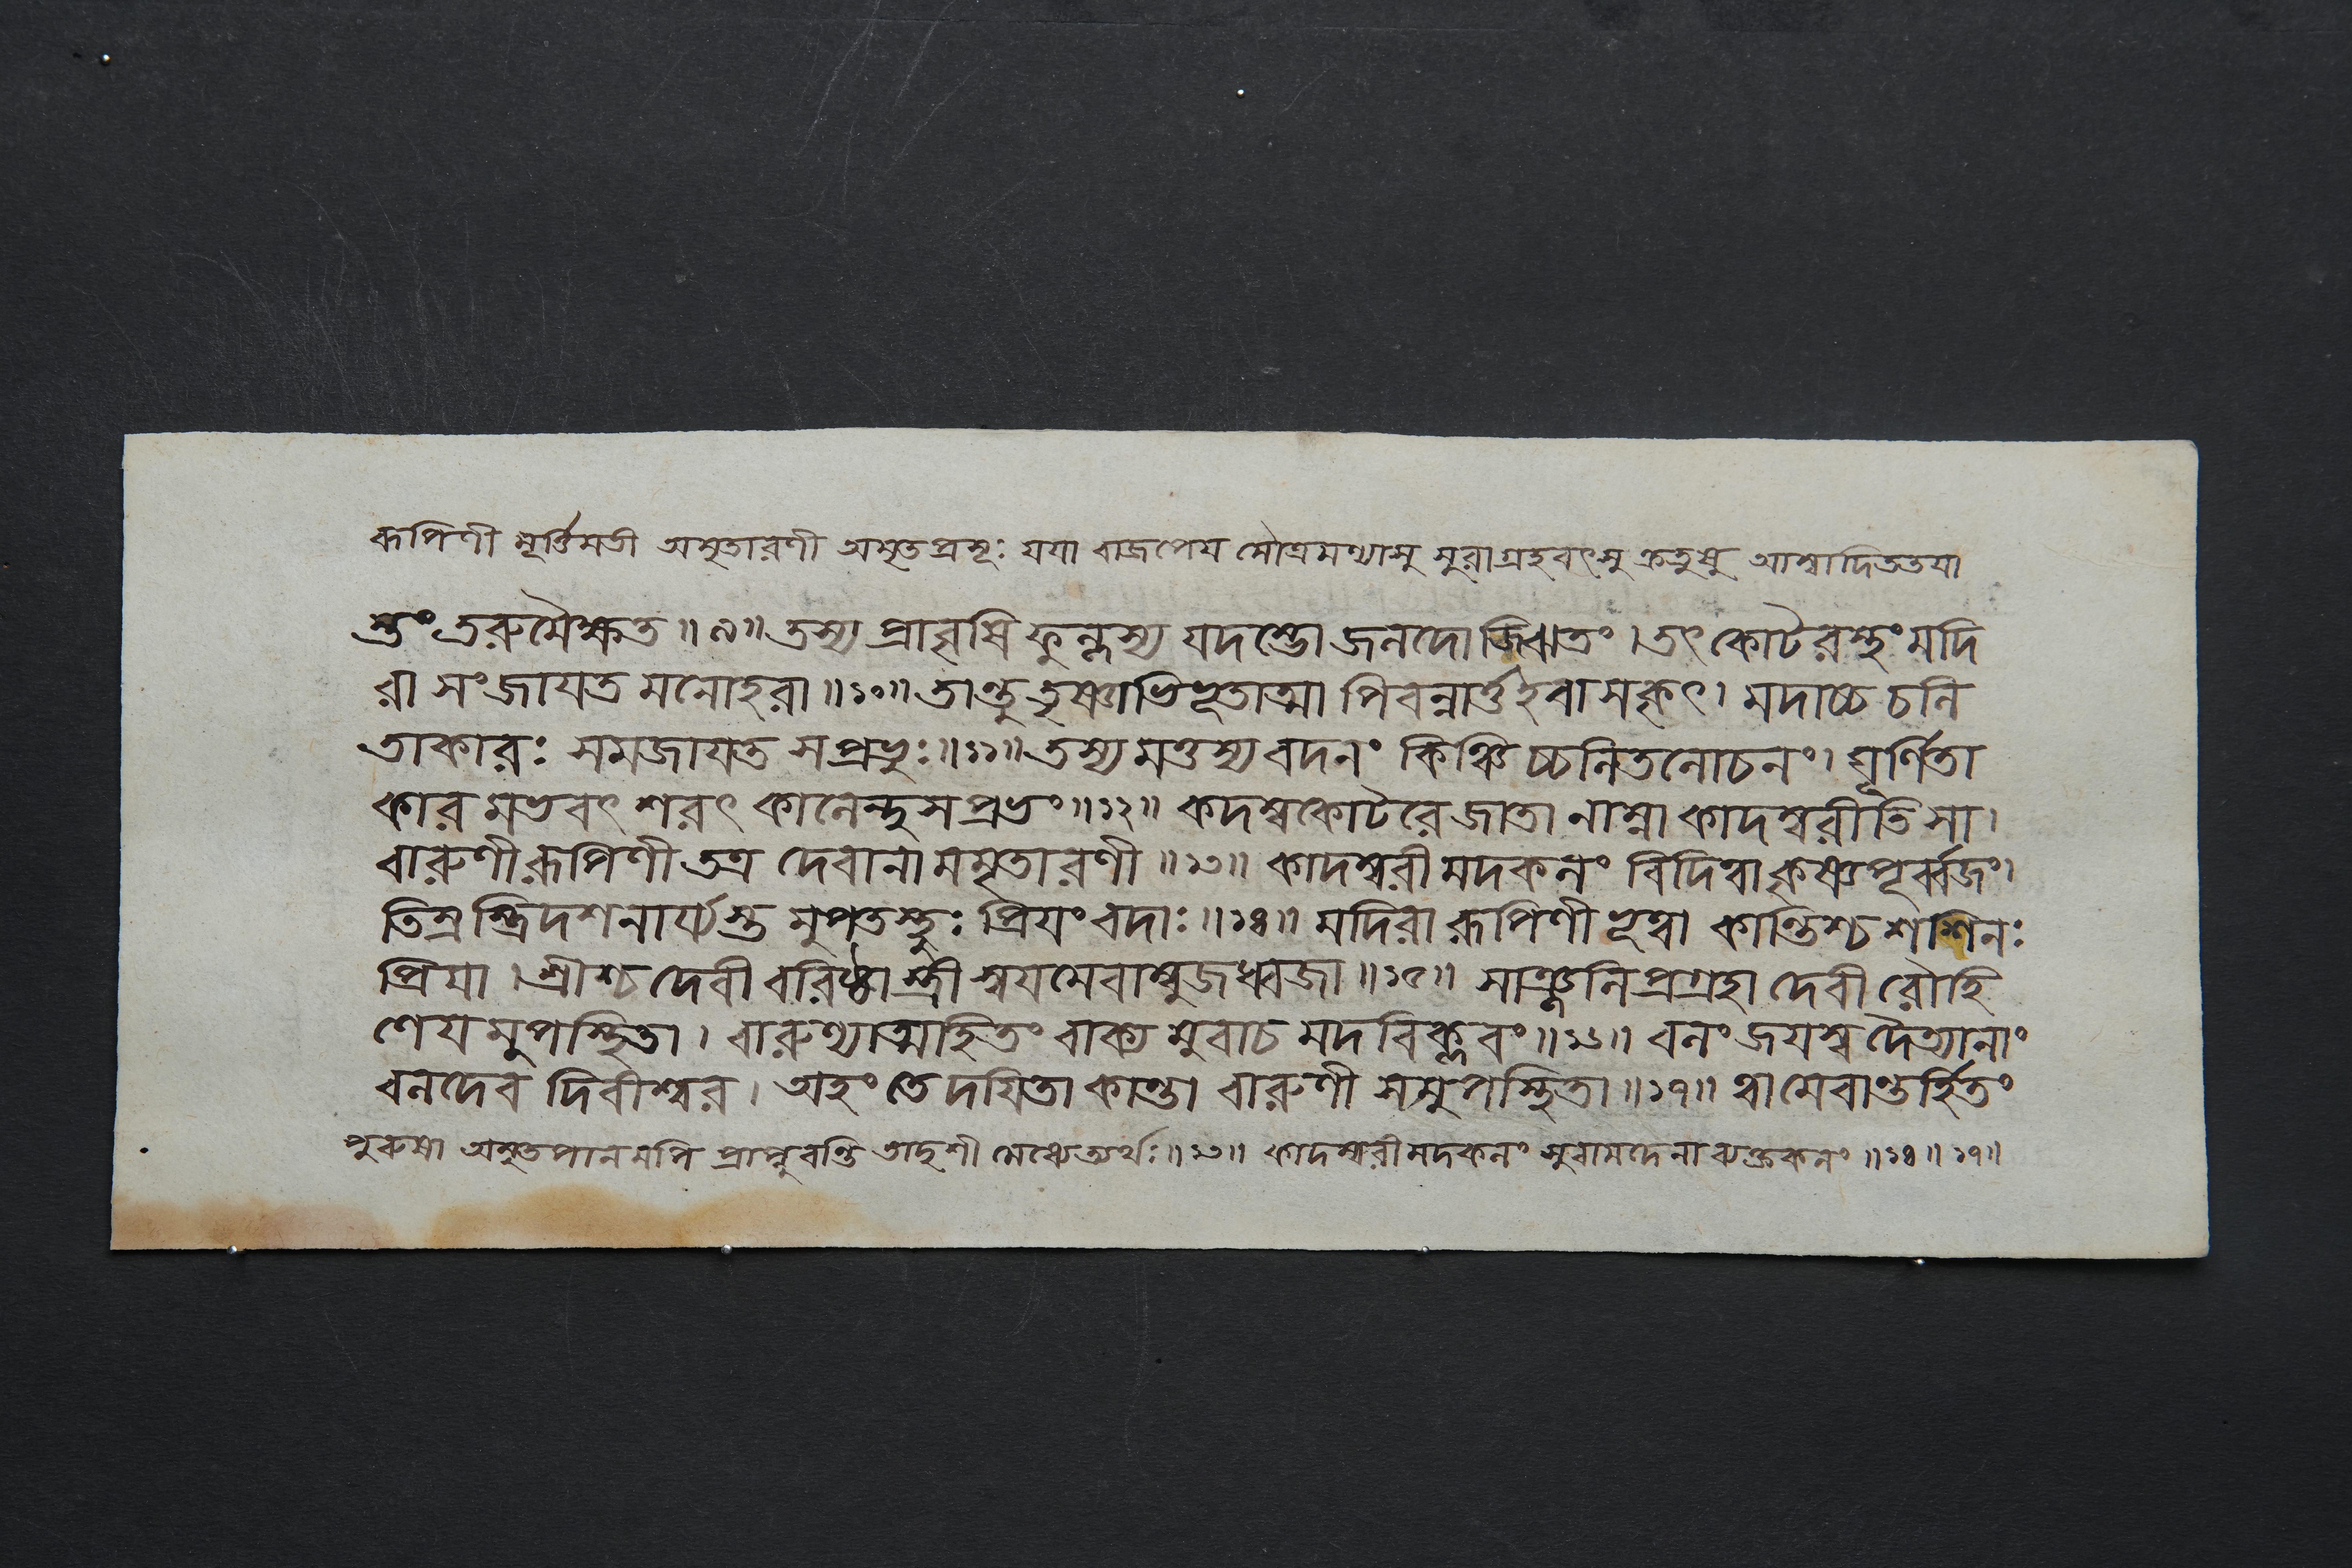 রূপিণী মূর্ত্তিমতী অমৃতারণী অমৃতপ্রসূঃ যয়া বাজপেয় সৌত্রামণ্যাসু সুরাগ্রহবৎসু ক্রতুষু আস্বাদিততয়া
স্তং তরুমৈক্ষত ॥ ৯॥ তস্য প্রাবৃষি ফুল্লস্য যদম্ভো জলদোজ্ঝিতং । তৎ কোটরস্থং মদি
রা সংজায়ত মনোহরা ॥১০॥ তান্তু তৃষ্ণাভিভূতাত্মা পিবন্নার্ত্ত ইবাসকৃৎ। মদাচ্চ চলি
তাকারঃ সমজায়ত স প্রভুঃ॥১১॥ তস্য মত্তস্য বদনং কিঞ্চিচ্চলিতলোচনং। ঘূর্ণিতা
কারমভবৎ শরৎ কালেন্দুসপ্রভং॥১২॥ কদম্বকোটরে জাতা নাম্না কাদম্বরীতি সা।
বারুণীরূপিণী তত্র দেবানামমৃতারণী ॥১৩॥ কাদম্বরীমদকলং বিদিত্বা কৃষ্ণপূর্ব্বজং।
তিস্রস্ত্রিদশনার্য্যস্তমুপতস্থুঃ প্রিয়ংবদাঃ ॥১৪॥ মদিরা রূপিণী ভূত্বা কান্তিশ্চ শশিনঃ
প্রিয়া । শ্রীশ্চ দেবী বরিষ্ঠা স্ত্রী স্বয়মেবাম্বুজধ্বজা ॥১৫॥ সাঞ্জলিপ্রগ্রহা দেবী রৌহি
ণেয়মুপস্থিতা। বারুণ্যাত্মহিতং বাক্যমুবাচ মদবিক্লবং॥১৬॥ বলং জয়স্ব দৈত্যানাং
বলদেব দিবীশ্বর। অহং তে দয়িতা কান্তা বারুণী সমুপস্থিতা ॥১৭॥ ত্বামেবান্তর্হিতং
পুরুষা অমৃতপানমপি প্রাপ্নুবন্তি তাদৃশী সেত্যর্থঃ॥১৩॥ কাদম্বরীমদকলং সুরামদেনাব্যক্তকলং ॥১৪॥ ১৭॥